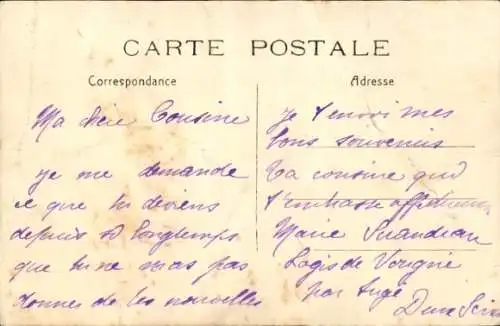 CARTE POSTALE
Correspondance
Ma chère Cousine
je me demande
ce que tu deviens
depuis si longtemps
que tu ne mas pas
donner de tes nouvelles
Adresse
je t'envoi mes
bons souvenirs
ta cousine qui
t'embrasse
Marie
Logis de
par